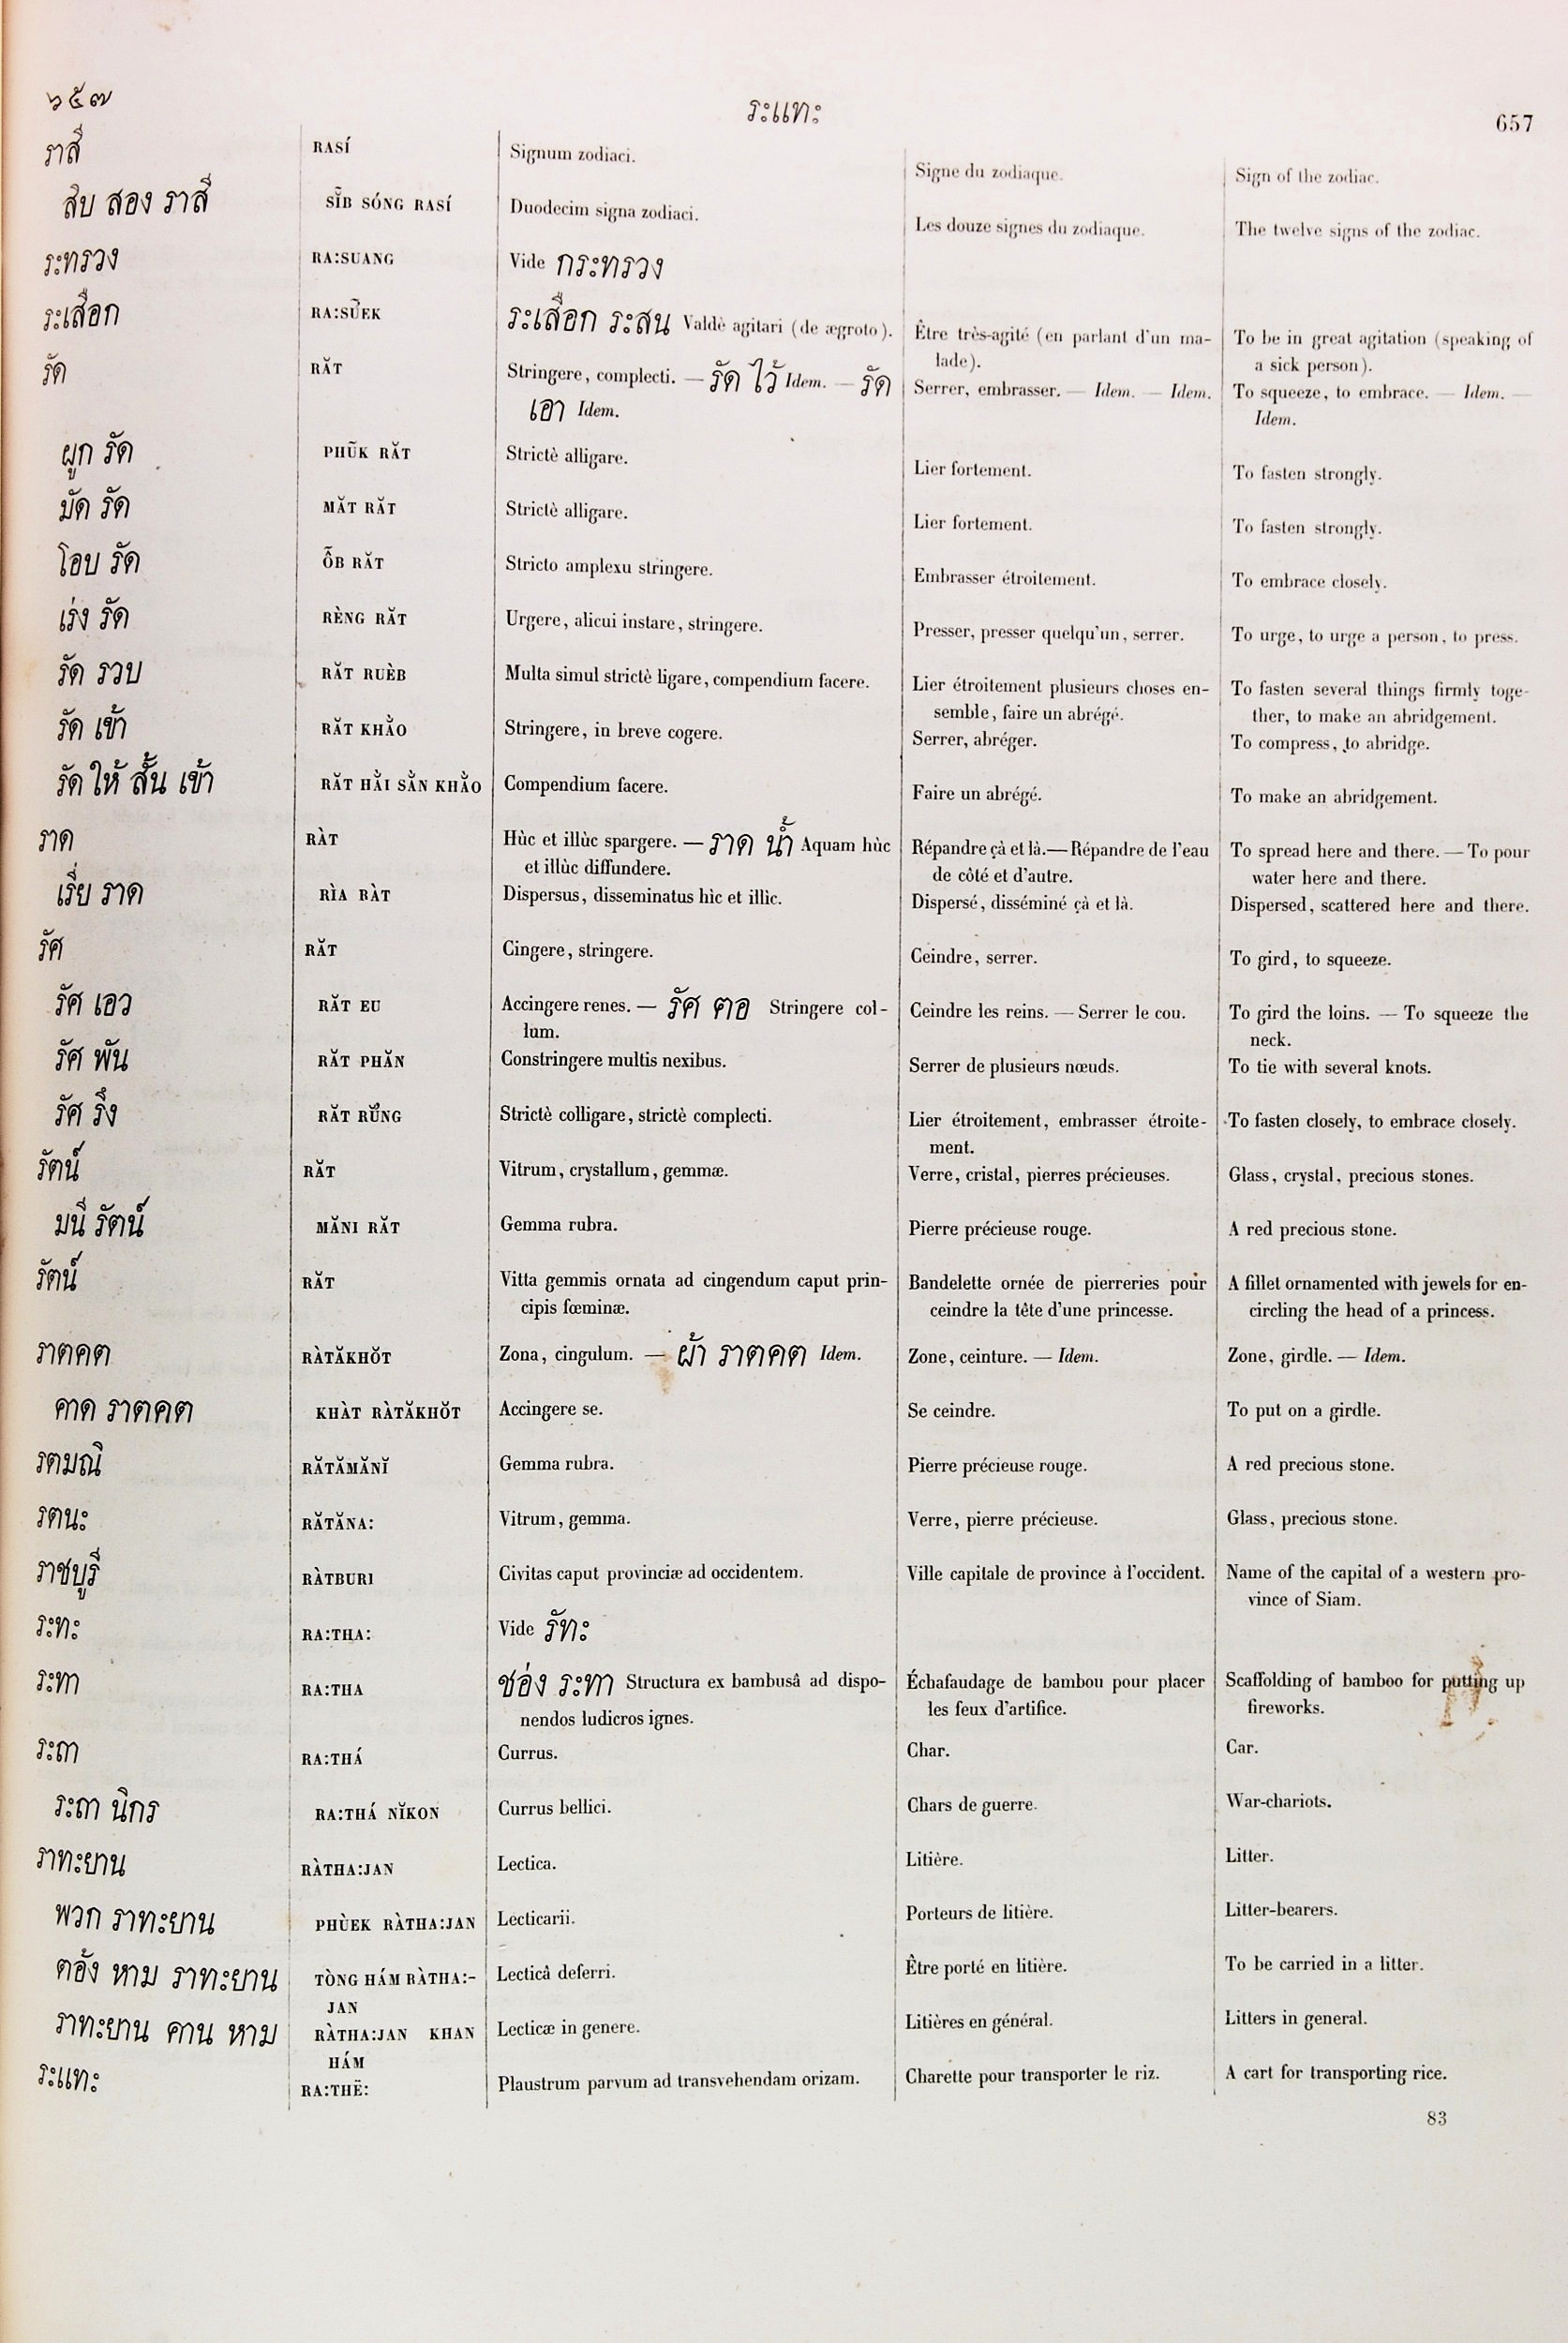 ๖๕๗ ระแทะ 657
ราสี RASÍ Signum zodiaci. Signe du zodiaque. Sign of the zodiac.
สิบ สอง ราสี SĬB SÓNG RASÍ Duodecim signa zodiaci. Les douze signes du zodiaque. The twelve signs of the zodiac.
ระทรวง RA:SUANG Vide กระทรวง
ระเสือก RA:SŨEK ระเสือก ระสน Valdè agitari (de ægroto). Être très-agité (en parlant d'un ma- To be in great agitation (speaking of
lade). a sick person).
รัด RĂT Stringere, complecti. — รัด ไว้ Idem. — รัด Serrer, embrasser. — Idem. — Idem. To squeeze, to embrace. — Idem. —
เอา Idem. Idem.
ผูก รัด PHŨK RĂT Strictè alligare. Lier fortement. To fasten strongly.
มัด รัด MĂT RĂT Strictè alligare. Lier fortement. To fasten strongly.
โอบ รัด ỖB RĂT Stricto amplexu stringere. Embrasser étroitement. To embrace closely.
เร่ง รัด RÈNG RĂT Urgere, alicui instare, stringere. Presser, presser quelqu'un, serrer. To urge, to urge a person, to press.
รัด รวบ RĂT RUÈB Multa simul strictè ligare, compendium facere. Lier étroitement plusieurs choses en- To fasten several things firmly toge-
semble, faire un abrégé. ther, to make an abridgement.
รัด เข้า RĂT KHẲO Stringere, in breve cogere. Serrer, abréger. To compress, to abridge.
รัด ให้ สั้น เข้า RĂT HẲI SẲN KHẲO Compendium facere. Faire un abrégé. To make an abridgement.
ราด RÀT Hùc et illùc spargere. — ราด น้ำ Aquam hùc Répandre çà et là.— Répandre de l'eau To spread here and there. — To pour
et illùc diffundere. de côté et d'autre. water here and there.
เรี่ย ราด RÌA RÀT Dispersus, disseminatus hìc et illìc. Dispersé, disséminé çà et là. Dispersed, scattered here and there.
รัศ RĂT Cingere, stringere. Ceindre, serrer. To gird, to squeeze.
รัศ เอว RĂT EU Accingere renes. — รัศ ฅอ Stringere col- Ceindre les reins. — Serrer le cou. To gird the loins. — To squeeze the
lum. neck.
รัศ พัน RĂT PHĂN Constringere multis nexibus. Serrer de plusieurs nœuds. To tie with several knots.
รัศ รึง RĂT RŬNG Strictè colligare, strictè complecti. Lier étroitement, embrasser étroite- To fasten closely, to embrace closely.
ment.
รัตน์ RĂT Vitrum, crystallum, gemmæ. Verre, cristal, pierres précieuses. Glass, crystal, precious stones.
มนี รัตน์ MĂNI RĂT Gemma rubra. Pierre précieuse rouge. A red precious stone.
รัตน์ RĂT Vitta gemmis ornata ad cingendum caput prin- Bandelette ornée de pierreries pour A fillet ornamented with jewels for en-
cipis fœminæ. ceindre la tête d'une princesse. circling the head of a princess.
ราตคต RÀTĂKHŎT Zona, cingulum. — ผ้า ราตคต Idem. Zone, ceinture. — Idem. Zone, girdle. — Idem.
คาด ราตคต KHÀT RÀTĂKHŎT Accingere se. Se ceindre. To put on a girdle.
รตมณิ RĂTĂMĂNĬ Gemma rubra. Pierre précieuse rouge. A red precious stone.
รตนะ RĂTĂNA: Vitrum, gemma. Verre, pierre précieuse. Glass, precious stone.
ราชบูรี RÀTBURI Civitas caput provinciæ ad occidentem. Ville capitale de province à l'occident. Name of the capital of a western pro-
vince of Siam.
ระทะ RA:THA: Vide รัทะ
ระทา RA:THA ช่อง ระทา Structura ex bambusâ ad dispo- Échafaudage de bambou pour placer Scaffolding of bamboo for putting up
nendos ludicros ignes. les feux d'artifice. fireworks.
ระถา RA:THÁ Currus. Char. Car.
ระถา นิกร RA:THÁ NĬKON Currus bellici. Chars de guerre. War-chariots.
ราทะยาน RÀTHA:JAN Lectica. Litière. Litter.
พวก ราทะยาน PHÙEK RÀTHA:JAN Lecticarii. Porteurs de litière. Litter-bearers.
ต้อง หาม ราทะยาน TÒNG HÁM RÀTHA:- Lecticâ deferri. Être porté en litière. To be carried in a litter.
JAN
ราทะยาน คาน หาม RÀTHA:JAN KHAN Lecticæ in genere. Litières en général. Litters in general.
HÁM
ระแทะ RA:THË: Plaustrum parvum ad transvehendam orizam. Charette pour transporter le riz. A cart for transporting rice.
83